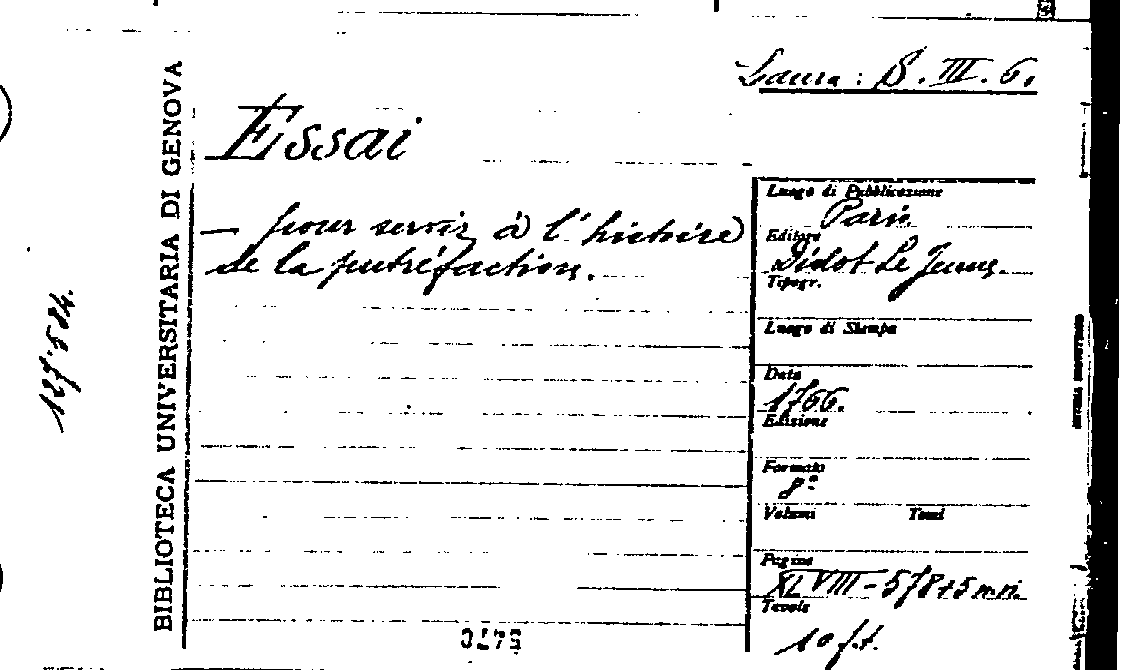 Laura: B. III. 6.
BIBLIOTECA UNIVERSITARIA DI GENOVA
Essai
— pour servir à l'histoire
de la putréfaction.
Luogo di Pubblicazione
Paris
Editore
Didot Le Jeune.
Tipogr.
Luogo di Stampa
Data
1766.
Edizione
Formato
8º
Volumi Tomi
Pagine
XLVIII-578+5 nn.
Tavole
10 f.t.
127.584.